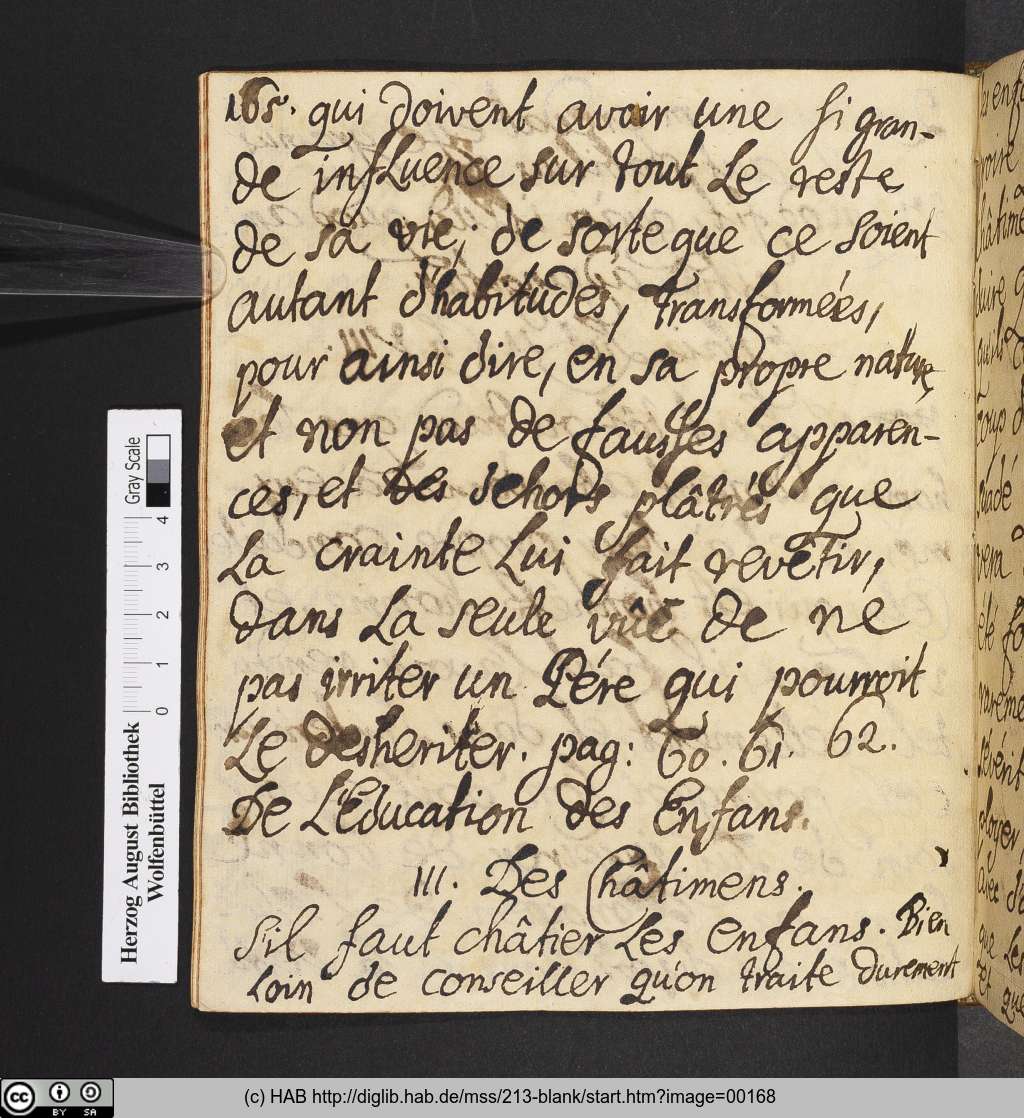 165. qui doivent avoir une si gran-
de influence sur tout Le reste
de sa vie; de sorte que ce soient
autant d'habitudes, transformées,
pour ainsi dire, en sa propre nature,
et non pas de fausses apparen-
ces, et des dehors plâtrés que
La crainte Lui fait revetir,
dans La seule vûë de ne
pas irriter un Pére qui pourroit
Le desheriter. pag: 60. 61. 62.
De L'Education des Enfans.
III. Des Châtimens.
S'il faut châtier Les enfans. Bien
Loin de conseiller qu'on traite durement
Gray Scale
0 1 2 3 4
Herzog August Bibliothek
Wolfenbüttel
cc BY SA
(c) HAB http://diglib.hab.de/mss/213-blank/start.htm?image=00168